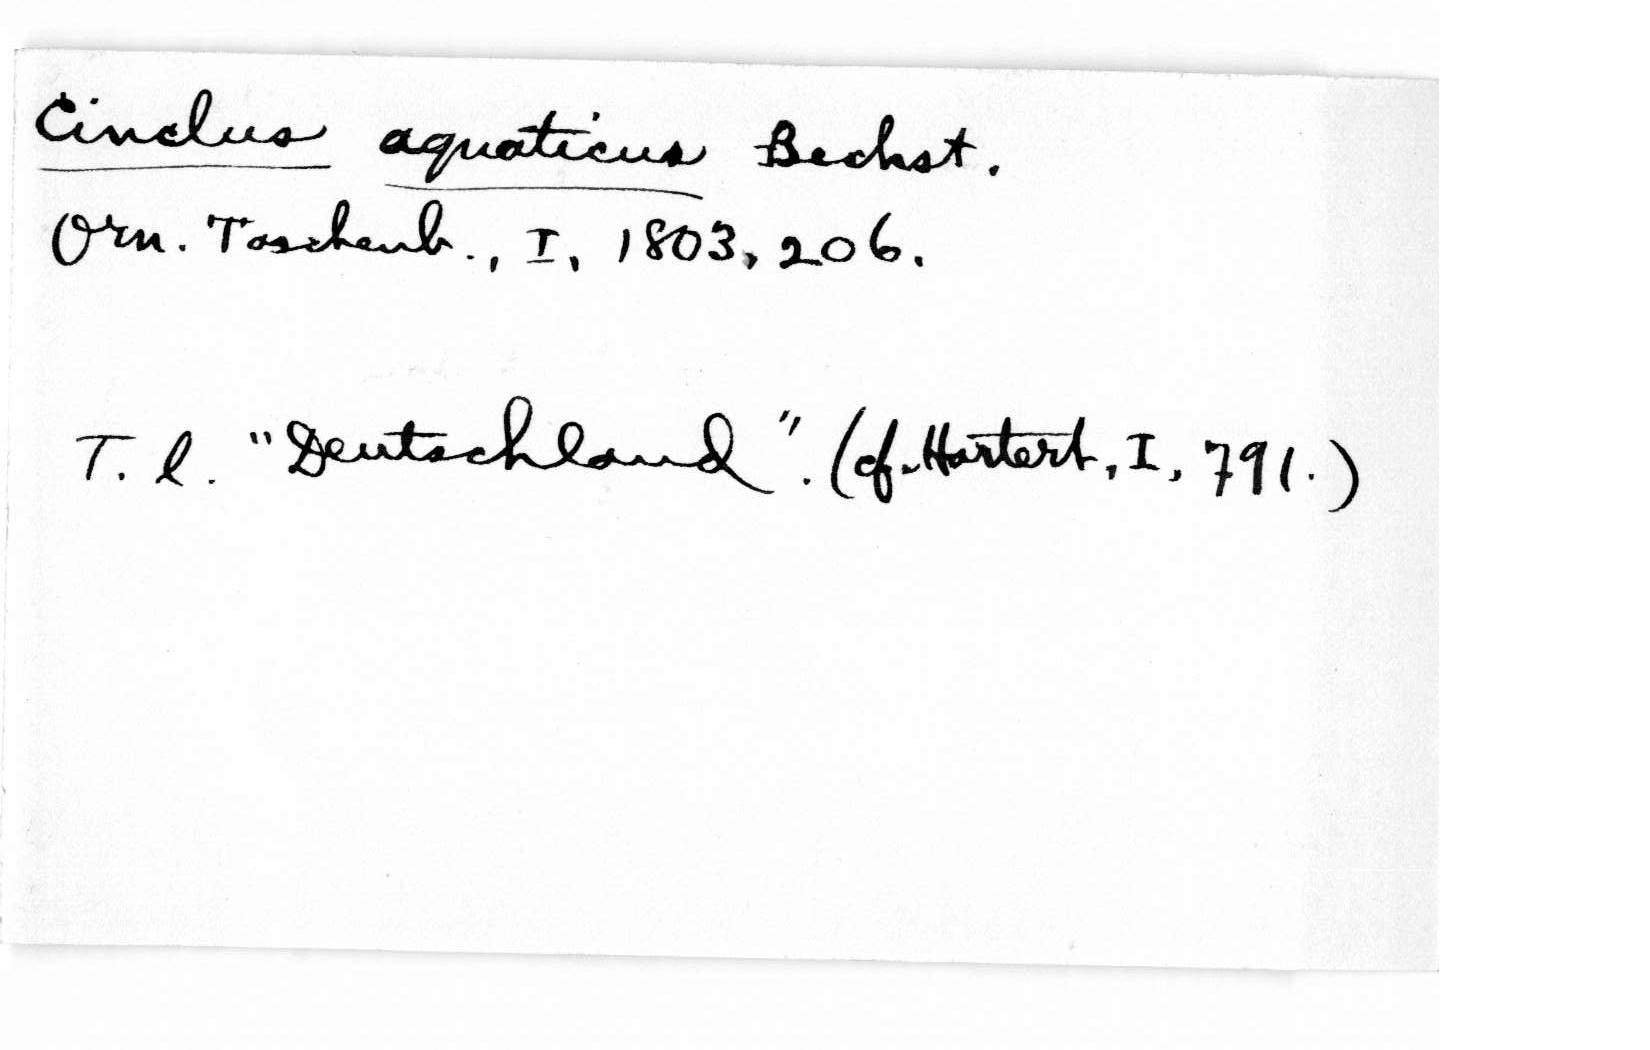 Cinclus aquaticus Bechst.
Orn. Taschenb., I, 1803, 206.
T. l. "Deutschland". (cf. Hartert, I, 791.)